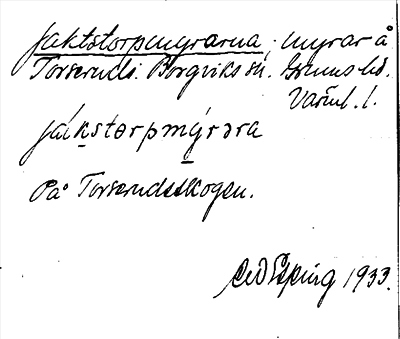 Jaktstorpmyrarna, myrar å
Torserud: Borgviks sn. Grums hd.
Värml. l.
jákstorpmýrəra
På Torserudsskogen.
1933.